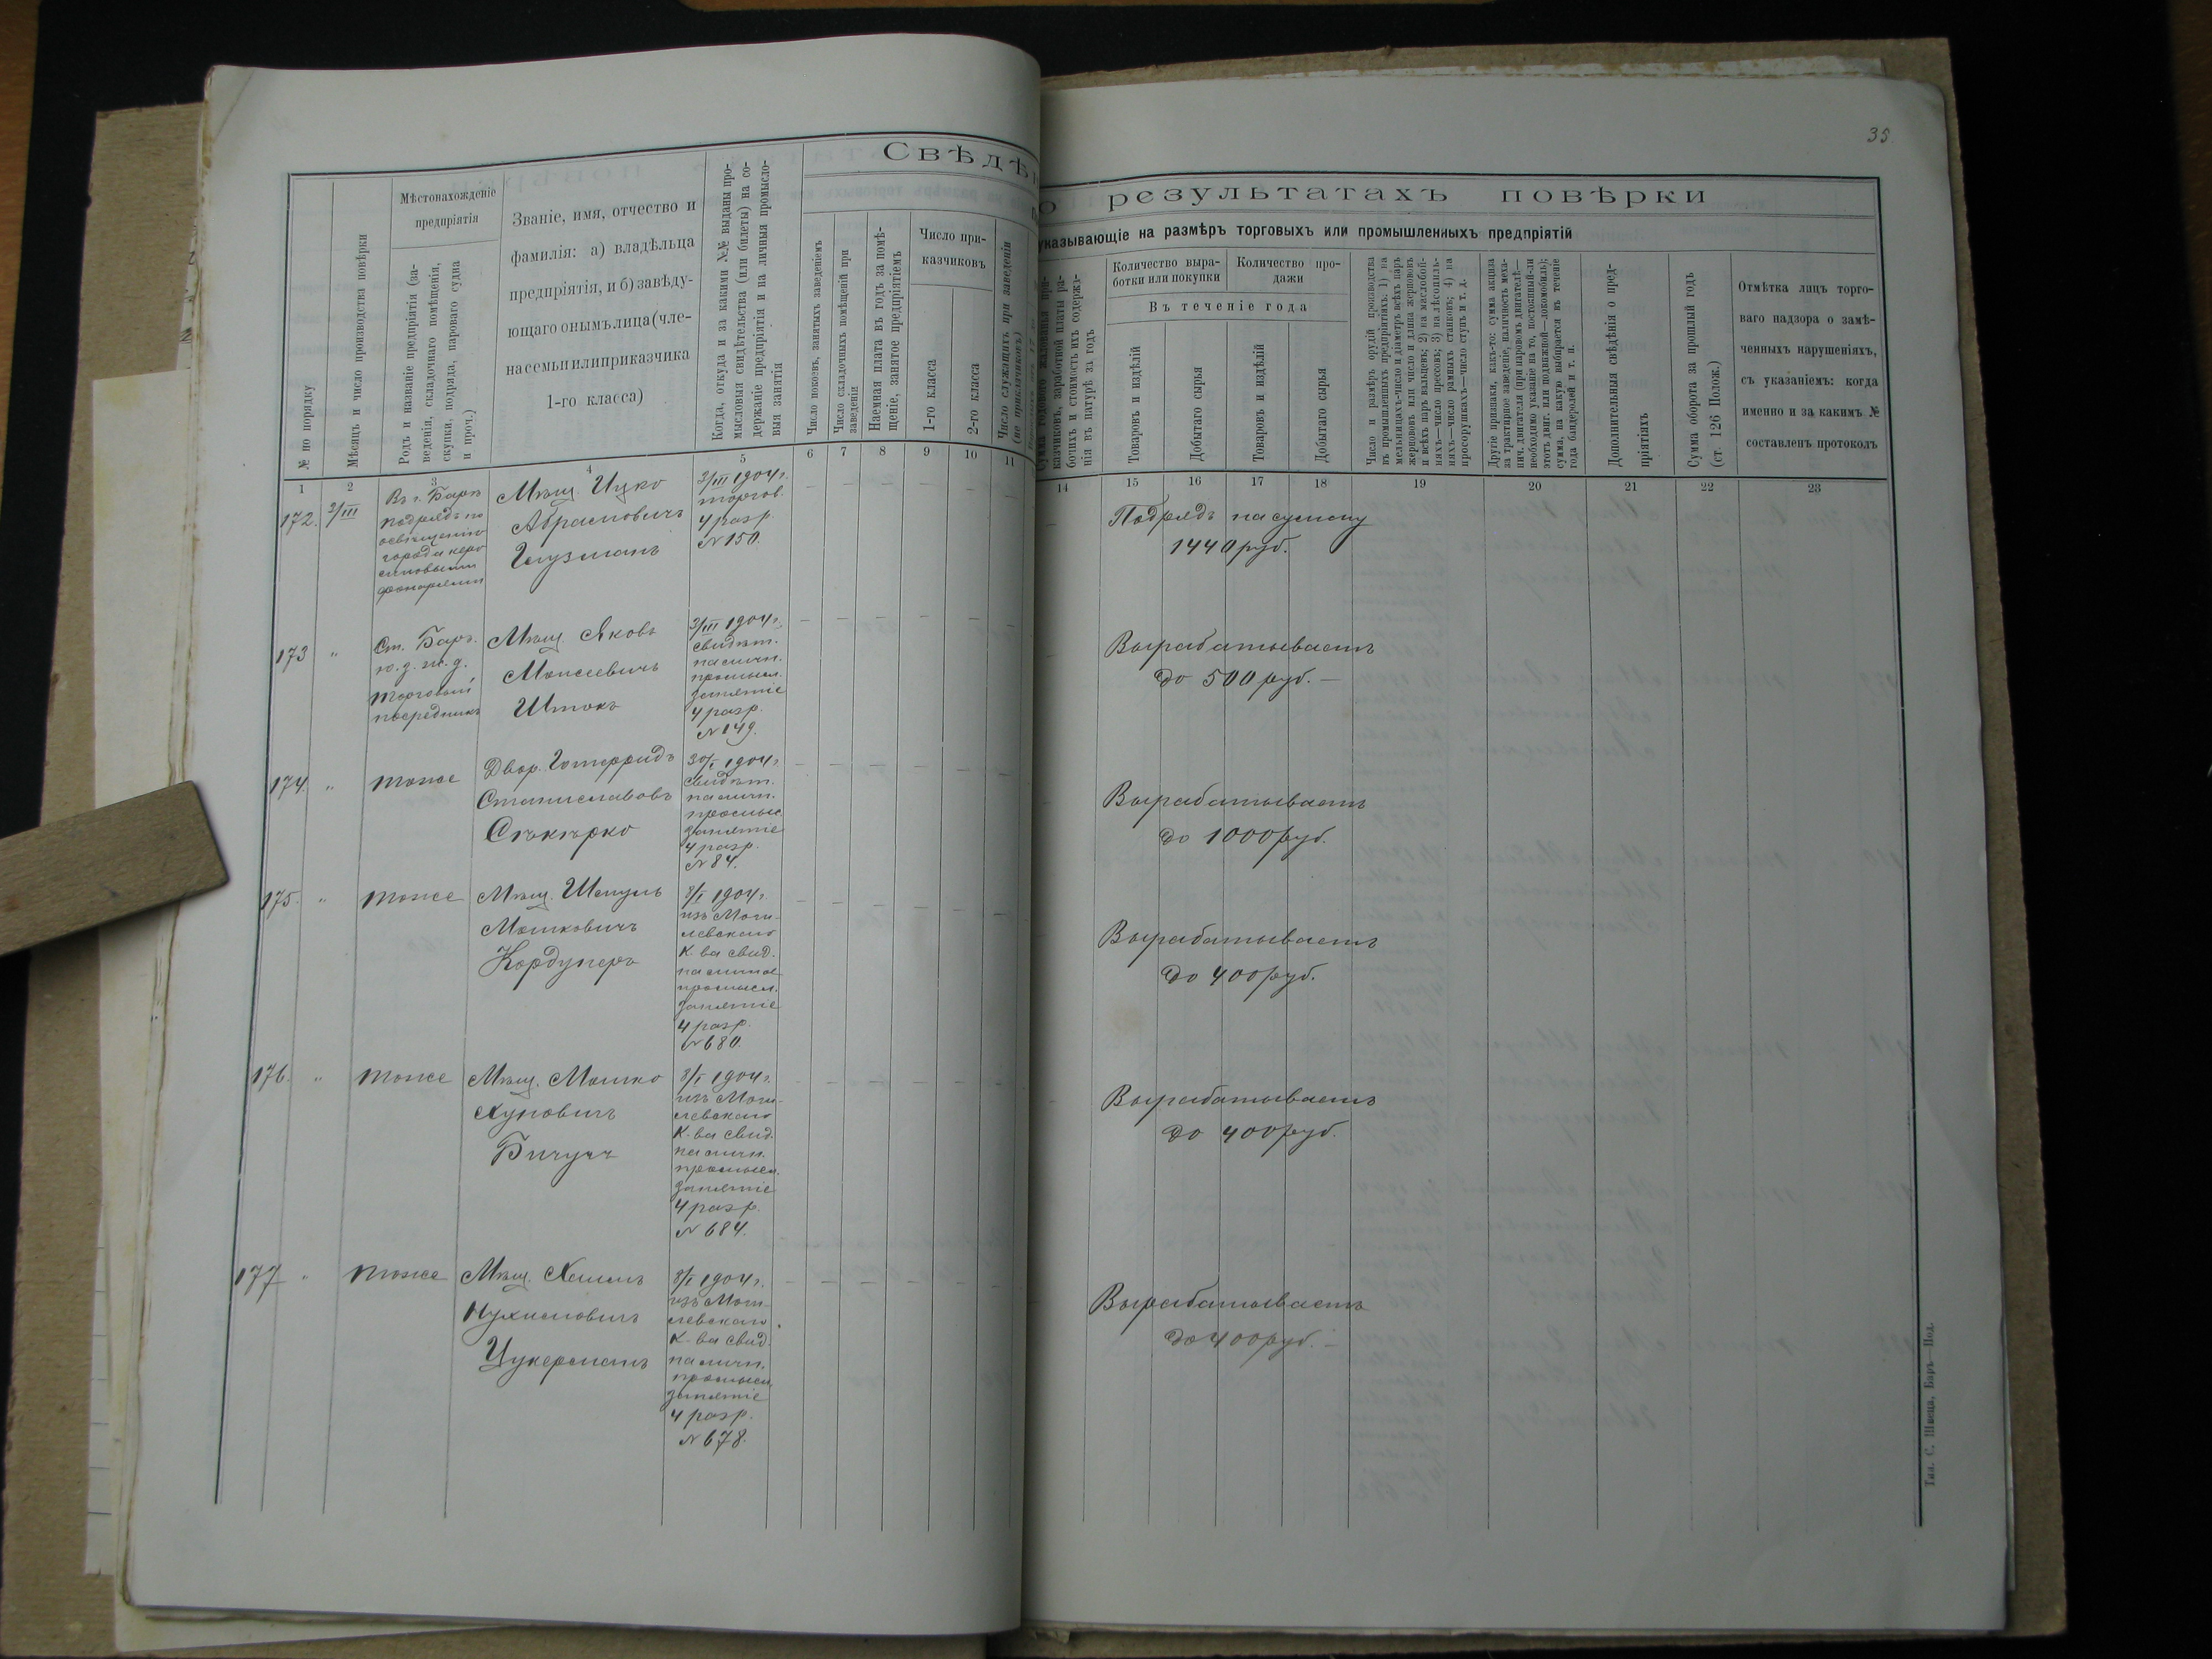 35
Свѣдѣн
о результатахъ повѣрки
указывающіе на размѣръ торговыхъ или промышленныхъ предпріятій
№ по порядку
Мѣсяцъ и число производства повѣрки
Мѣстонахожденіе
предпріятія
Родъ и названіе предпріятія (за-
веденія, складочнаго помѣщенія,
скупки, подряда, парового судна
и проч.)
Званіе, имя, отчество и
фамилія: а) владѣльца
предпріятія, и б) завѣду-
ющаго онымъ лица (чле-
на семьи или приказчика
1-го класса)
Когда, откуда и за какими №№ выданы про-
мысловыя свидѣтельства (или билеты) на со-
держаніе предпріятія и на личныя промысло-
выя занятія
Число покоевъ, занятыхъ заведеніемъ
Число складочныхъ помѣщеній при
заведеніи
Наемная плата въ годъ за помѣ-
щеніе, занятое предпріятіемъ
Число при-
казчиковъ
1-го класса
2-го класса
Число служащихъ при заведеніи
(не приказчиковъ)
Сумма годового жалованья при-
казчиковъ, заработной платы ра-
бочихъ и стоимость ихъ содержа-
нія въ натурѣ за годъ
Количество выра-
ботки или покупки
Количество про-
дажи
Въ теченіе года
Товаровъ и издѣлій
Добытаго сырья
Товаровъ и издѣлій
Добытаго сырья
Число и размѣръ орудій производства
въ промышленныхъ предпріятіяхъ: 1) на
мельницахъ—число и діаметръ всѣхъ паръ
жернововъ или число и длина жернововъ
и всѣхъ паръ вальцевъ; 2) на маслобой-
няхъ—число прессовъ; 3) на лѣсопиль-
няхъ—число рамныхъ станковъ; 4) на
просорушкахъ—число ступъ и т. д.
Другіе признаки, какъ-то: сумма акциза
за трактирное заведеніе, наличность меха-
нич. двигателя (при паровомъ двигателѣ—
необходимо указаніе на то, постоянный-ли
этотъ двиг. или подвижной—локомобиль);
сумма, на какую выбирается въ теченіе
года бандеролей и т. п.
Дополнительныя свѣдѣнія о пред-
пріятіяхъ
Сумма оборота за прошлый годъ
(ст. 126 Полож.)
Отмѣтка лицъ торго-
ваго надзора о замѣ-
ченныхъ нарушеніяхъ,
съ указаніемъ: когда
именно и за какимъ №
составленъ протоколъ
1 2 3 4 5 6 7 8 9 10 11 14 15 16 17 18 19 20 21 22 23
172. 2/III
Въ г. Барѣ
подрядъ по
освѣщенію
города керо
синовыми
фонарями
Мѣщ. Ицко
Абрамовичъ
Глузманъ
3/III 1904 г.
торгов.
4 разр.
№ 150.
Подрядъ на сумму
1440 руб.
173 "
Ст. Баръ.
ю. з. ж. д.
торговый
посредникъ
Мѣщ. Яковъ
Моисеевичъ
Штокъ
3/III 1904 г.
свидѣт.
на личн.
промысл.
занятіе
4 разр.
№ 149.
Вырабатываетъ
до 500 руб. —
174. "
тоже
Двор. Готфридъ
Станиславовъ
Сѣкѣрко
30/I 1904 г.
свидѣт.
на личн.
промысл.
занятіе
4 разр.
№ 84.
Вырабатываетъ
до 1000 руб.
175. "
тоже
Мѣщ. Шмуль
Мошковичъ
Кордунеръ
8/I 1904 г.
изъ Моги-
левскаго
К-ва свид.
на личное
промысл.
занятіе
4 разр.
№ 680.
Вырабатываетъ
до 400 руб.
176. "
тоже
Мѣщ. Мошко
8/I 1904 г.
изъ Моги-
левскаго
К-ва свид.
на личн.
промысл.
занятіе
4 разр.
№ 684.
Вырабатываетъ
до 400 руб.
177 "
тоже
Мѣщ.
Нухимовичъ
Цукерманъ
8/I 1904 г.
изъ Моги-
левскаго
К-ва свид.
на личн.
промысл.
занятіе
4 разр.
№ 678.
Вырабатываетъ
до 400 руб. —
Тип. С. Швеца, Баръ—Под.